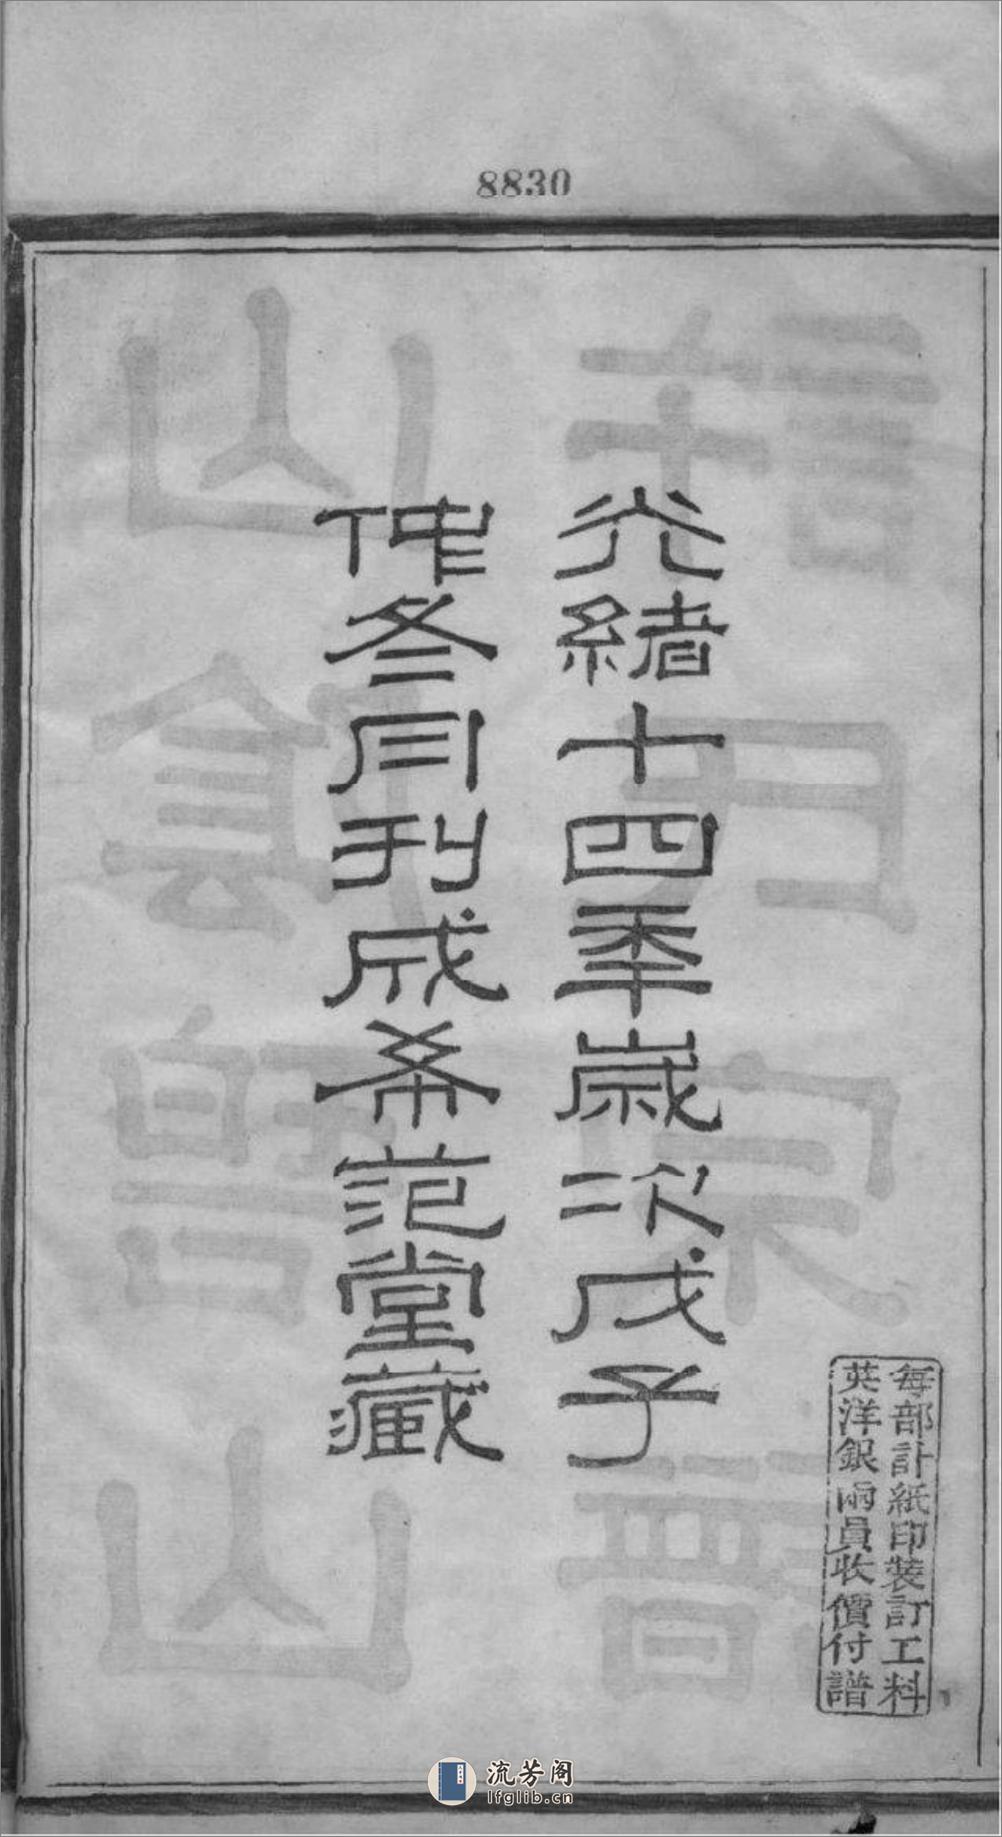 8830
光緒十四季歲次戊子
仲冬月刊成希范堂藏
每部計紙印裝訂工料
英洋銀兩員收價付譜
流芳阁
lfglib.cn